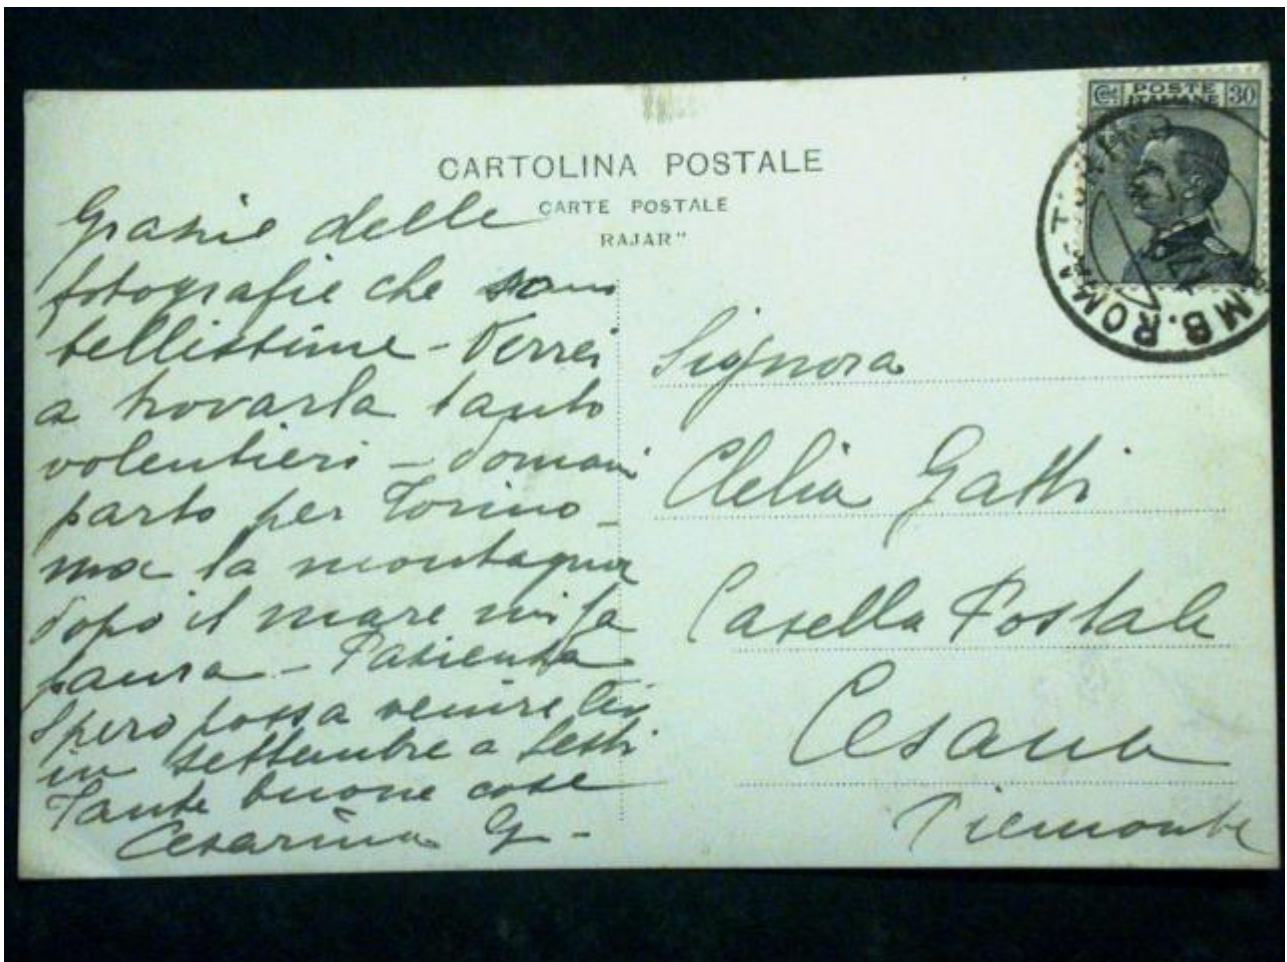 CARTOLINA POSTALE
CARTE POSTALE
RAJAR"
Grazie delle
fotografie che sono
bellissime - Verrei
a trovarla tanto
volentieri - domani
parto per Torino -
ma la montagna
dopo il mare mi fa
paura - Pazienza
Spero possa venire Lei
in settembre a Sestri
Tante buone cose
Cesarina G -
Poste
Italiane
Cent. 30
Signora
Clelia Gatti
Casella Postale
Cesana
Piemonte